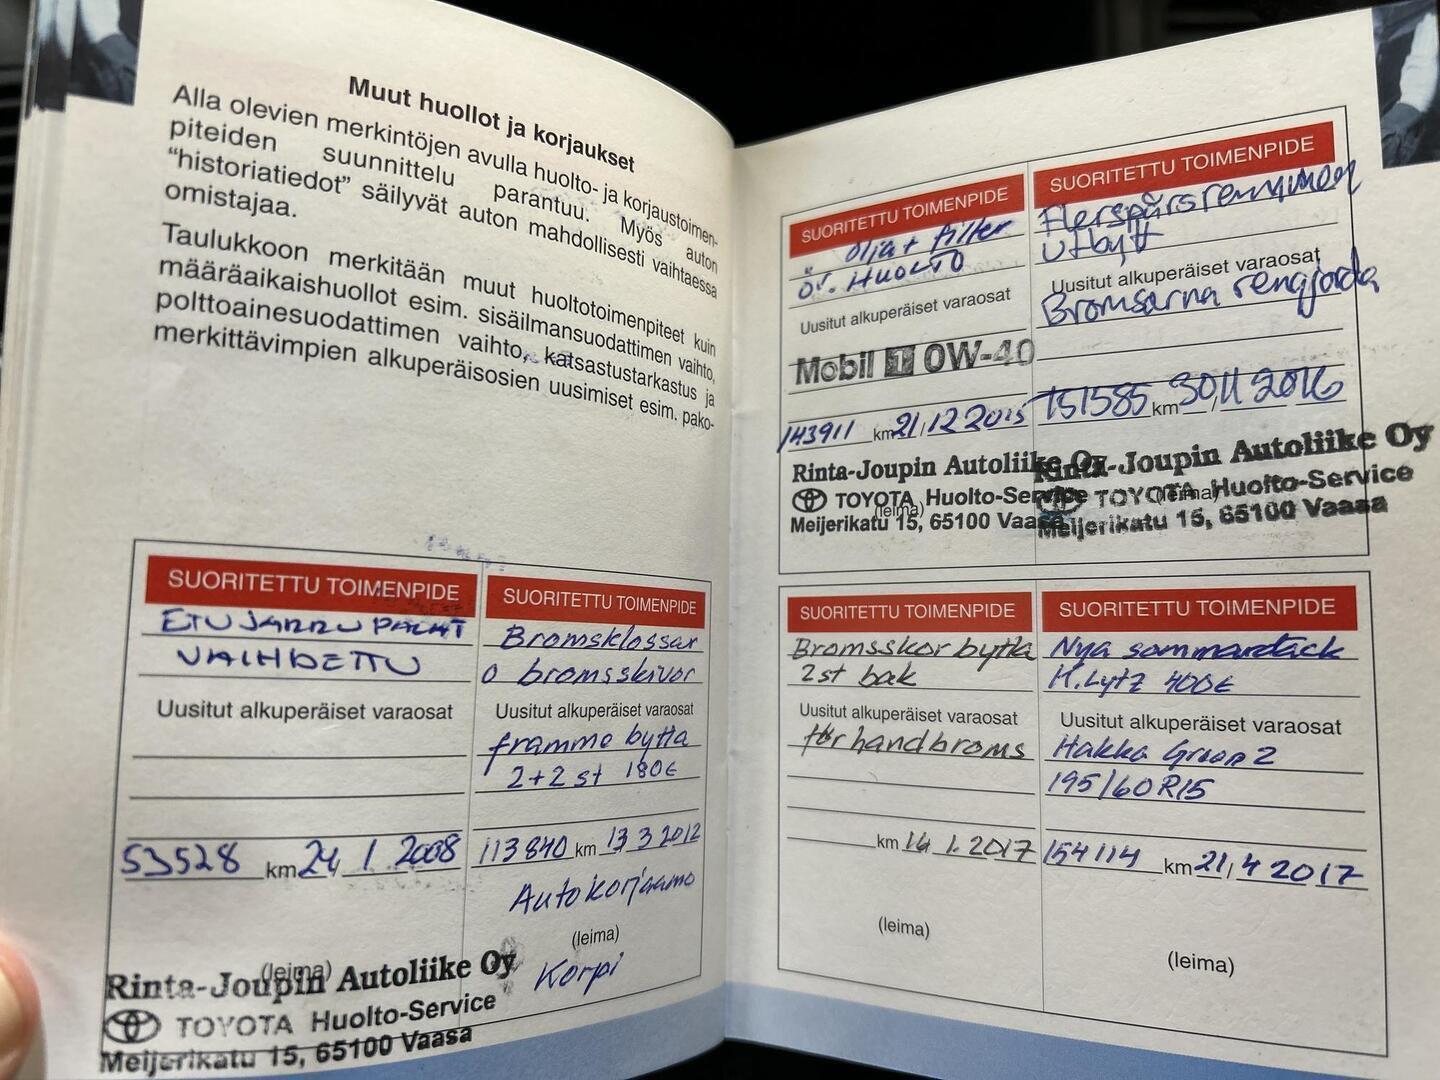 Muut huollot ja korjaukset
Alla olevien merkintöjen avulla huolto- ja korjaustoimen-
piteiden suunnittelu parantuu. Myös auton
"historiatiedot" säilyvät auton mahdollisesti vaihtaessa
omistajaa.
Taulukkoon merkitään muut huoltotoimenpiteet kuin
määräaikaishuollot esim. sisäilmansuodattimen vaihto,
polttoainesuodattimen vaihto, katsastustarkastus ja
merkittävimpien alkuperäisosien uusimiset esim. pako-
SUORITETTU TOIMENPIDE
ETUJARRUPALAT
VAIHDETTU
Uusitut alkuperäiset varaosat
53528 km 24/1 2008
(leima)
Rinta-Joupin Autoliike Oy
TOYOTA Huolto-Service
Meijerikatu 15, 65100 Vaasa
SUORITETTU TOIMENPIDE
Bromsklossar
o bromsskivor
Uusitut alkuperäiset varaosat
framme bytta
2+2 st 180€
113840 km 13 3 2012
Autokorjaamo
(leima)
Korpi
SUORITETTU TOIMENPIDE
olja + filter
öv. HUOLTO
Uusitut alkuperäiset varaosat
Mobil 1 0W-40
143911 km 21/12 2015
Rinta-Joupin Autoliike Oy
TOYOTA Huolto-Service
(leima)
Meijerikatu 15, 65100 Vaasa
SUORITETTU TOIMENPIDE
Flerspårsremmen
utbytt
Uusitut alkuperäiset varaosat
Bromsarna rengjorda
151585 km 30/11 2016
Rinta-Joupin Autoliike Oy
TOYOTA Huolto-Service
(leima)
Meijerikatu 15, 65100 Vaasa
SUORITETTU TOIMENPIDE
Bromsskor bytta
2st bak
Uusitut alkuperäiset varaosat
för handbroms
km 14 1. 2017
(leima)
SUORITETTU TOIMENPIDE
Nya sommardäck
H. Lytz 400€
Uusitut alkuperäiset varaosat
Hakka Green 2
195/60 R15
154114 km 21/4 2017
(leima)